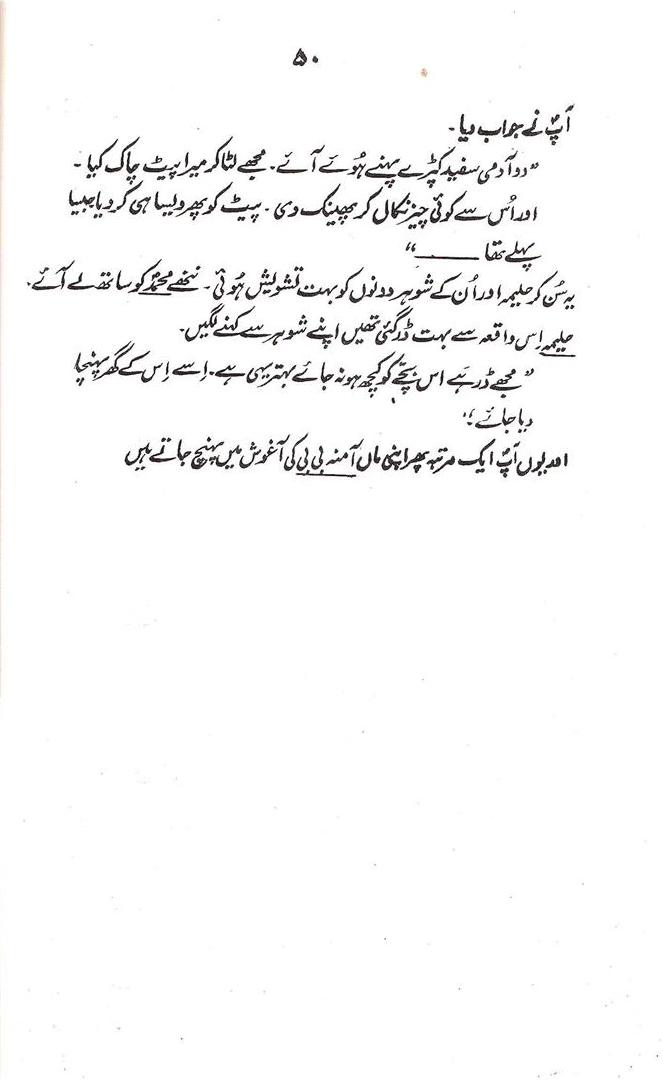 ۵۰
آپؐ نے جواب دیا۔
”دو آدمی سفید کپڑے پہنے ہُوئے آئے۔ مجھے لٹا کر میرا پیٹ چاک کیا۔
اور اُس سے کوئی چیز نکال کر پھینک دی۔ پیٹ کو پھر ویسا ہی کر دیا جیسا
پہلے تھا ______“
یہ سُن کر حلیمہ اور اُن کے شوہر دونوں کو بہت تشویش ہُوئی۔ ننھے محمدؐ کو ساتھ لے آئے۔
حلیمہ اِس واقعہ سے بہت ڈر گئی تھیں اپنے شوہر سے کہنے لگیں۔
”مجھے ڈر ہے اس بچّے کو کچھ ہو نہ جائے بہتر یہی ہے۔ اِسے اِس کے گھر پہنچا
دیا جائے۔“
اور یوں آپؐ ایک مرتبہ پھر اپنی ماں آمنہ بی بی کی آغوش میں پہنچ جاتے ہیں